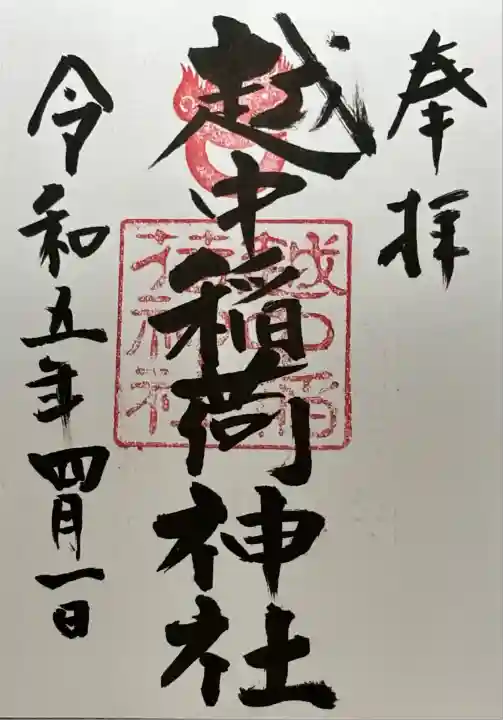 奉拝
越中稲荷神社
越中稲荷神社
令和五年四月一日